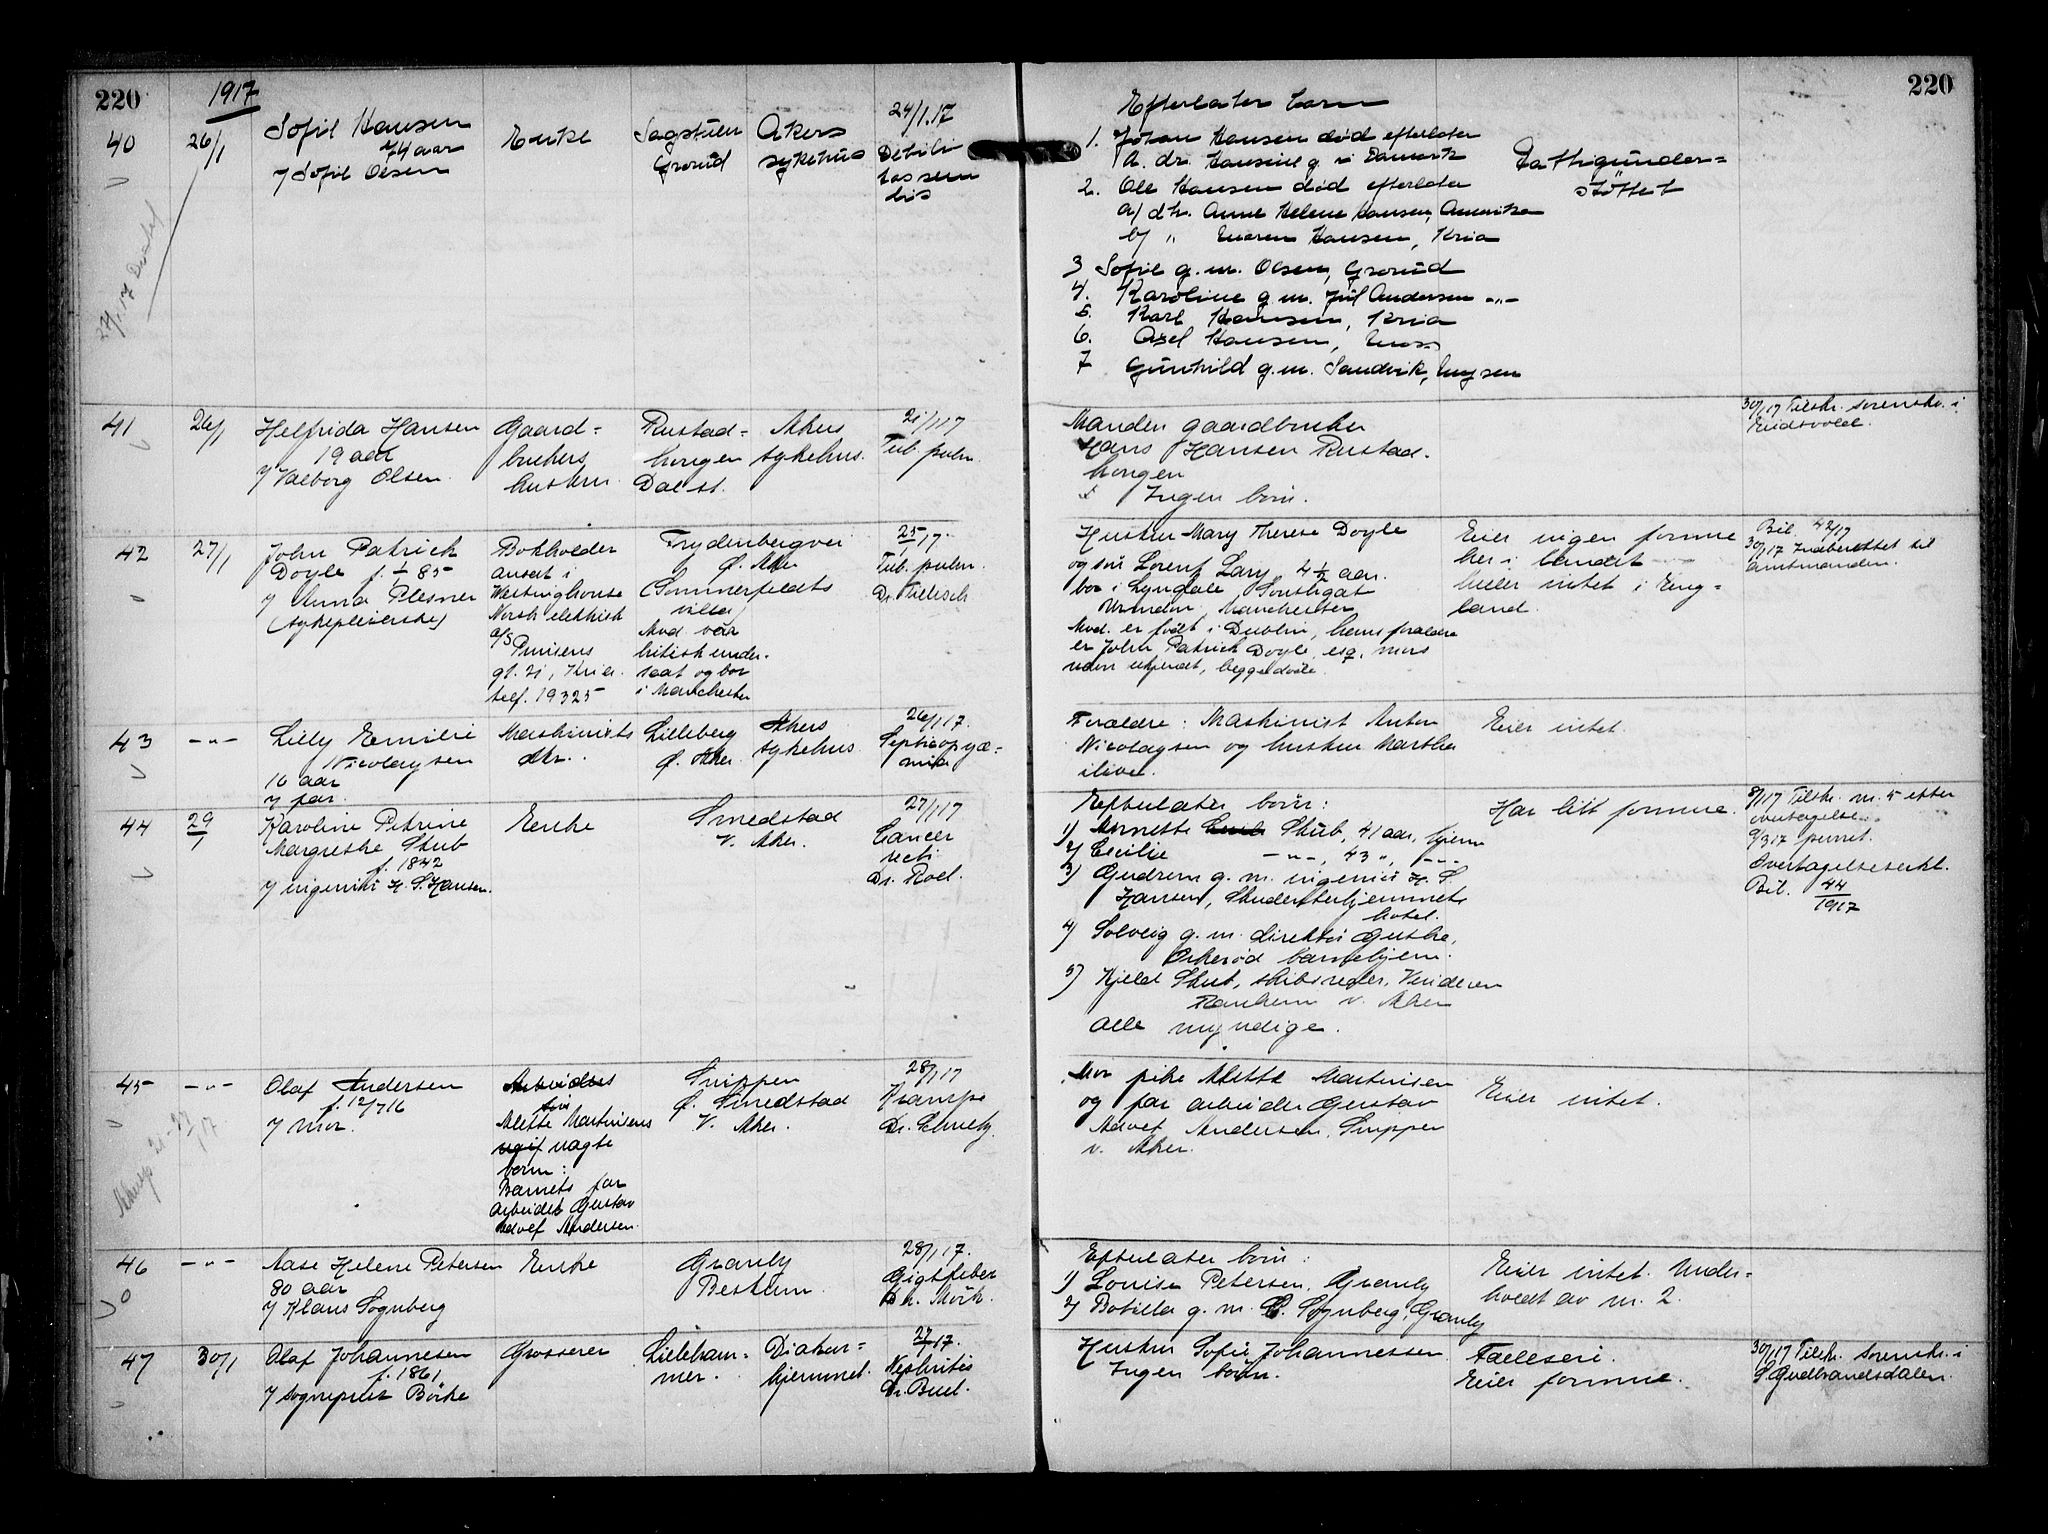 220
1917
40
26/1
Sofie Hansen
74 aar
v/ Sofie Olsen
Enke
Sagstuen
Grorud
Akers
sykehus
24/1.17
Debili
tas seni
lis
Efterlater barn
1. Johan Hansen død efterlater
a. dr. Hansine g. i Danmark
2. Ole Hansen død efterlater
a/ dtr. Anne Helene Hansen, Amerika
b/ " Maren Hansen, Kria
3 Sofie g.m. Olsen, Grorud
4. Karoline g.m. Juil Andersen -"-
5. Karl Hansen, Kria
6. Axel Hansen, Moss
7 Gunhild g.m. Sandvik, Mysen
Fattigunder=
støttet
220
41
26/1
Helfrida Hansen
19 aar
v/ Valborg Olsen.
Gaard=
brukers
hustru.
Rustad=
haugen
Dal st.
Akers
sykehus.
21/1 17
Tub. pulm.
Manden gaardbruker
Hans Hansen Rustad-
haugen
Ingen børn.
30/1 17 Tilskr. sorenskr. i
Eidsvold.
42
27/1
John Patrick
Doyle f. 1/1 85
v/ Anna Plesner
(sykepleierske)
Bokholder
ansat i
Westinghouse
Norsk elektrisk
a/s Prinsens
gt. 21, Kria.
telf. 19325
Frydenbergvei
Ø. Aker
(Sommerfeldts
villa)
Avd. var
britisk under-
saat og bor
i Manchester
25/1 17.
Tub. pulm.
Dr. Tillisch.
Hustru Mary Therese Doyle
og søn Lorent Lary, 4 1/2 aar.
bor i Lyndale, Southgat
Urmston, Manchester
Avd. er født i Dublin, hans forældre
er John Patrick Doyle, esq, mors
navn ukjendt, begge døde.
Eier ingen formue
her i landet
heller intet i Eng=
land.
Bil. 42/17
30/1 17 Indberettet til
amtmanden.
43
-"-
Lilly Emilie
Nicolaysen
10 aar
v/ far.
Maskinists
dtr.
Lilleberg
Ø. Aker.
Akers
sykehus.
26/1 17.
Septicopyæ=
mia
Forældre: Maskinist Anton
Nicolaysen og hustru Martha
ilive.
Eier intet.
44
29/1
Karoline Petrine
Margrethe Stub
f. 1842
v/ ingeniør H. S. Hansen.
Enke
Smedstad
V. Aker.
27/1 17
Cancer
recti
Dr. Roll.
Efterlater børn:
1) Annette Stub, 41 aar, hjemme
2) Cecilie -"-, 43 ", -"-
3) Gudrun g.m. ingeniør H. S.
Hansen, Studenterhjemmets
hotel.
4) Solveig g.m. direktør Guthe,
Orkerød barnehjem.
5) Kjeld Stub, skibsreder, Vinderen
Ranheim v. Aker
Alle myndige.
Har litt formue.
8/1 17 Tilskr. nr. 5 efter
overtagelse.
9/3 17 purret.
Overtagelseserkl.
Bil. 44/1917
45
-"-
Olaf Andersen
f. 12/7 16
v/ mor.
Arbeiders
søn
Alette Martinsens
uegte
barn:
Barnets far
arbeider Gustav
Adolf Andersen.
Snippen
Ø. Smedstad
V. Aker.
28/1 17
Krampe
Dr. Schnelz.
Mor pike Alette Martinsen
og far arbeider Gustav
Adolf Andersen, Snippen
v. Aker.
Eier intet.
46
-"-
Aase Helene Petersen
80 aar
v/ Klaus Sognberg
Enke
Granly
Bestum.
28/1 17.
Gigtfeber
Dr. Mörk.
Efterlater børn:
1) Louise Petersen, Granly
2) Botilla g.m. C. Sognberg, Granly
Eier intet. Under=
holdt av nr. 2.
47
30/1
Olaf Johannesen
f. 1861
v/ sogneprest Børke
Grosserer
Lilleham=
mer.
Diakon=
hjemmet.
27/1 17.
Nephritis
Dr. Bull.
Hustru Sofie Johannessen
Ingen børn.
Fælleseie.
Eier formue.
30/1 17 Tilskr. sorenskr. i
S Gudbrandsdalen.